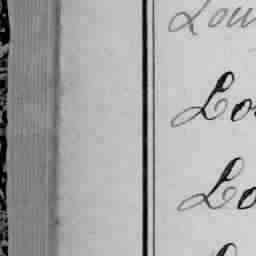 Lou
Lo
Lo